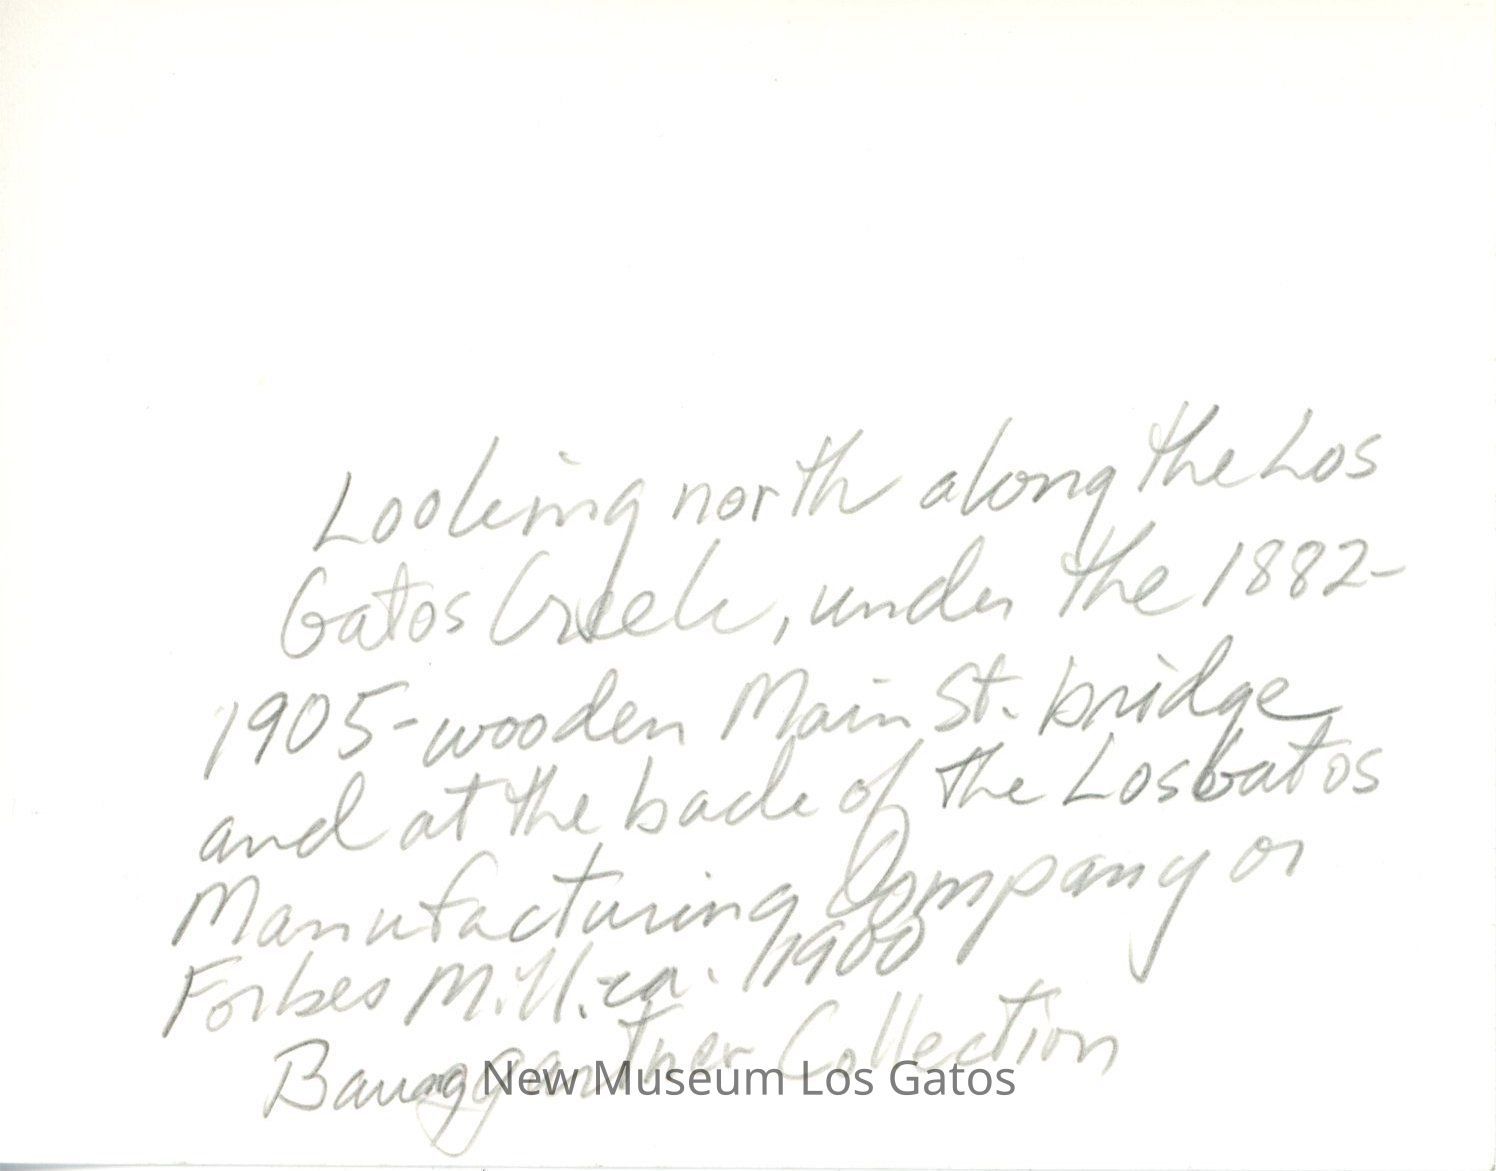 Looking north along the Los
Gatos Creek, under the 1882-
1905-wooden Main St. bridge
and at the back of the Los Gatos
Manufacturing Company or
Forbes Mill. ca. 1900
Baumgartner Collection
New Museum Los Gatos